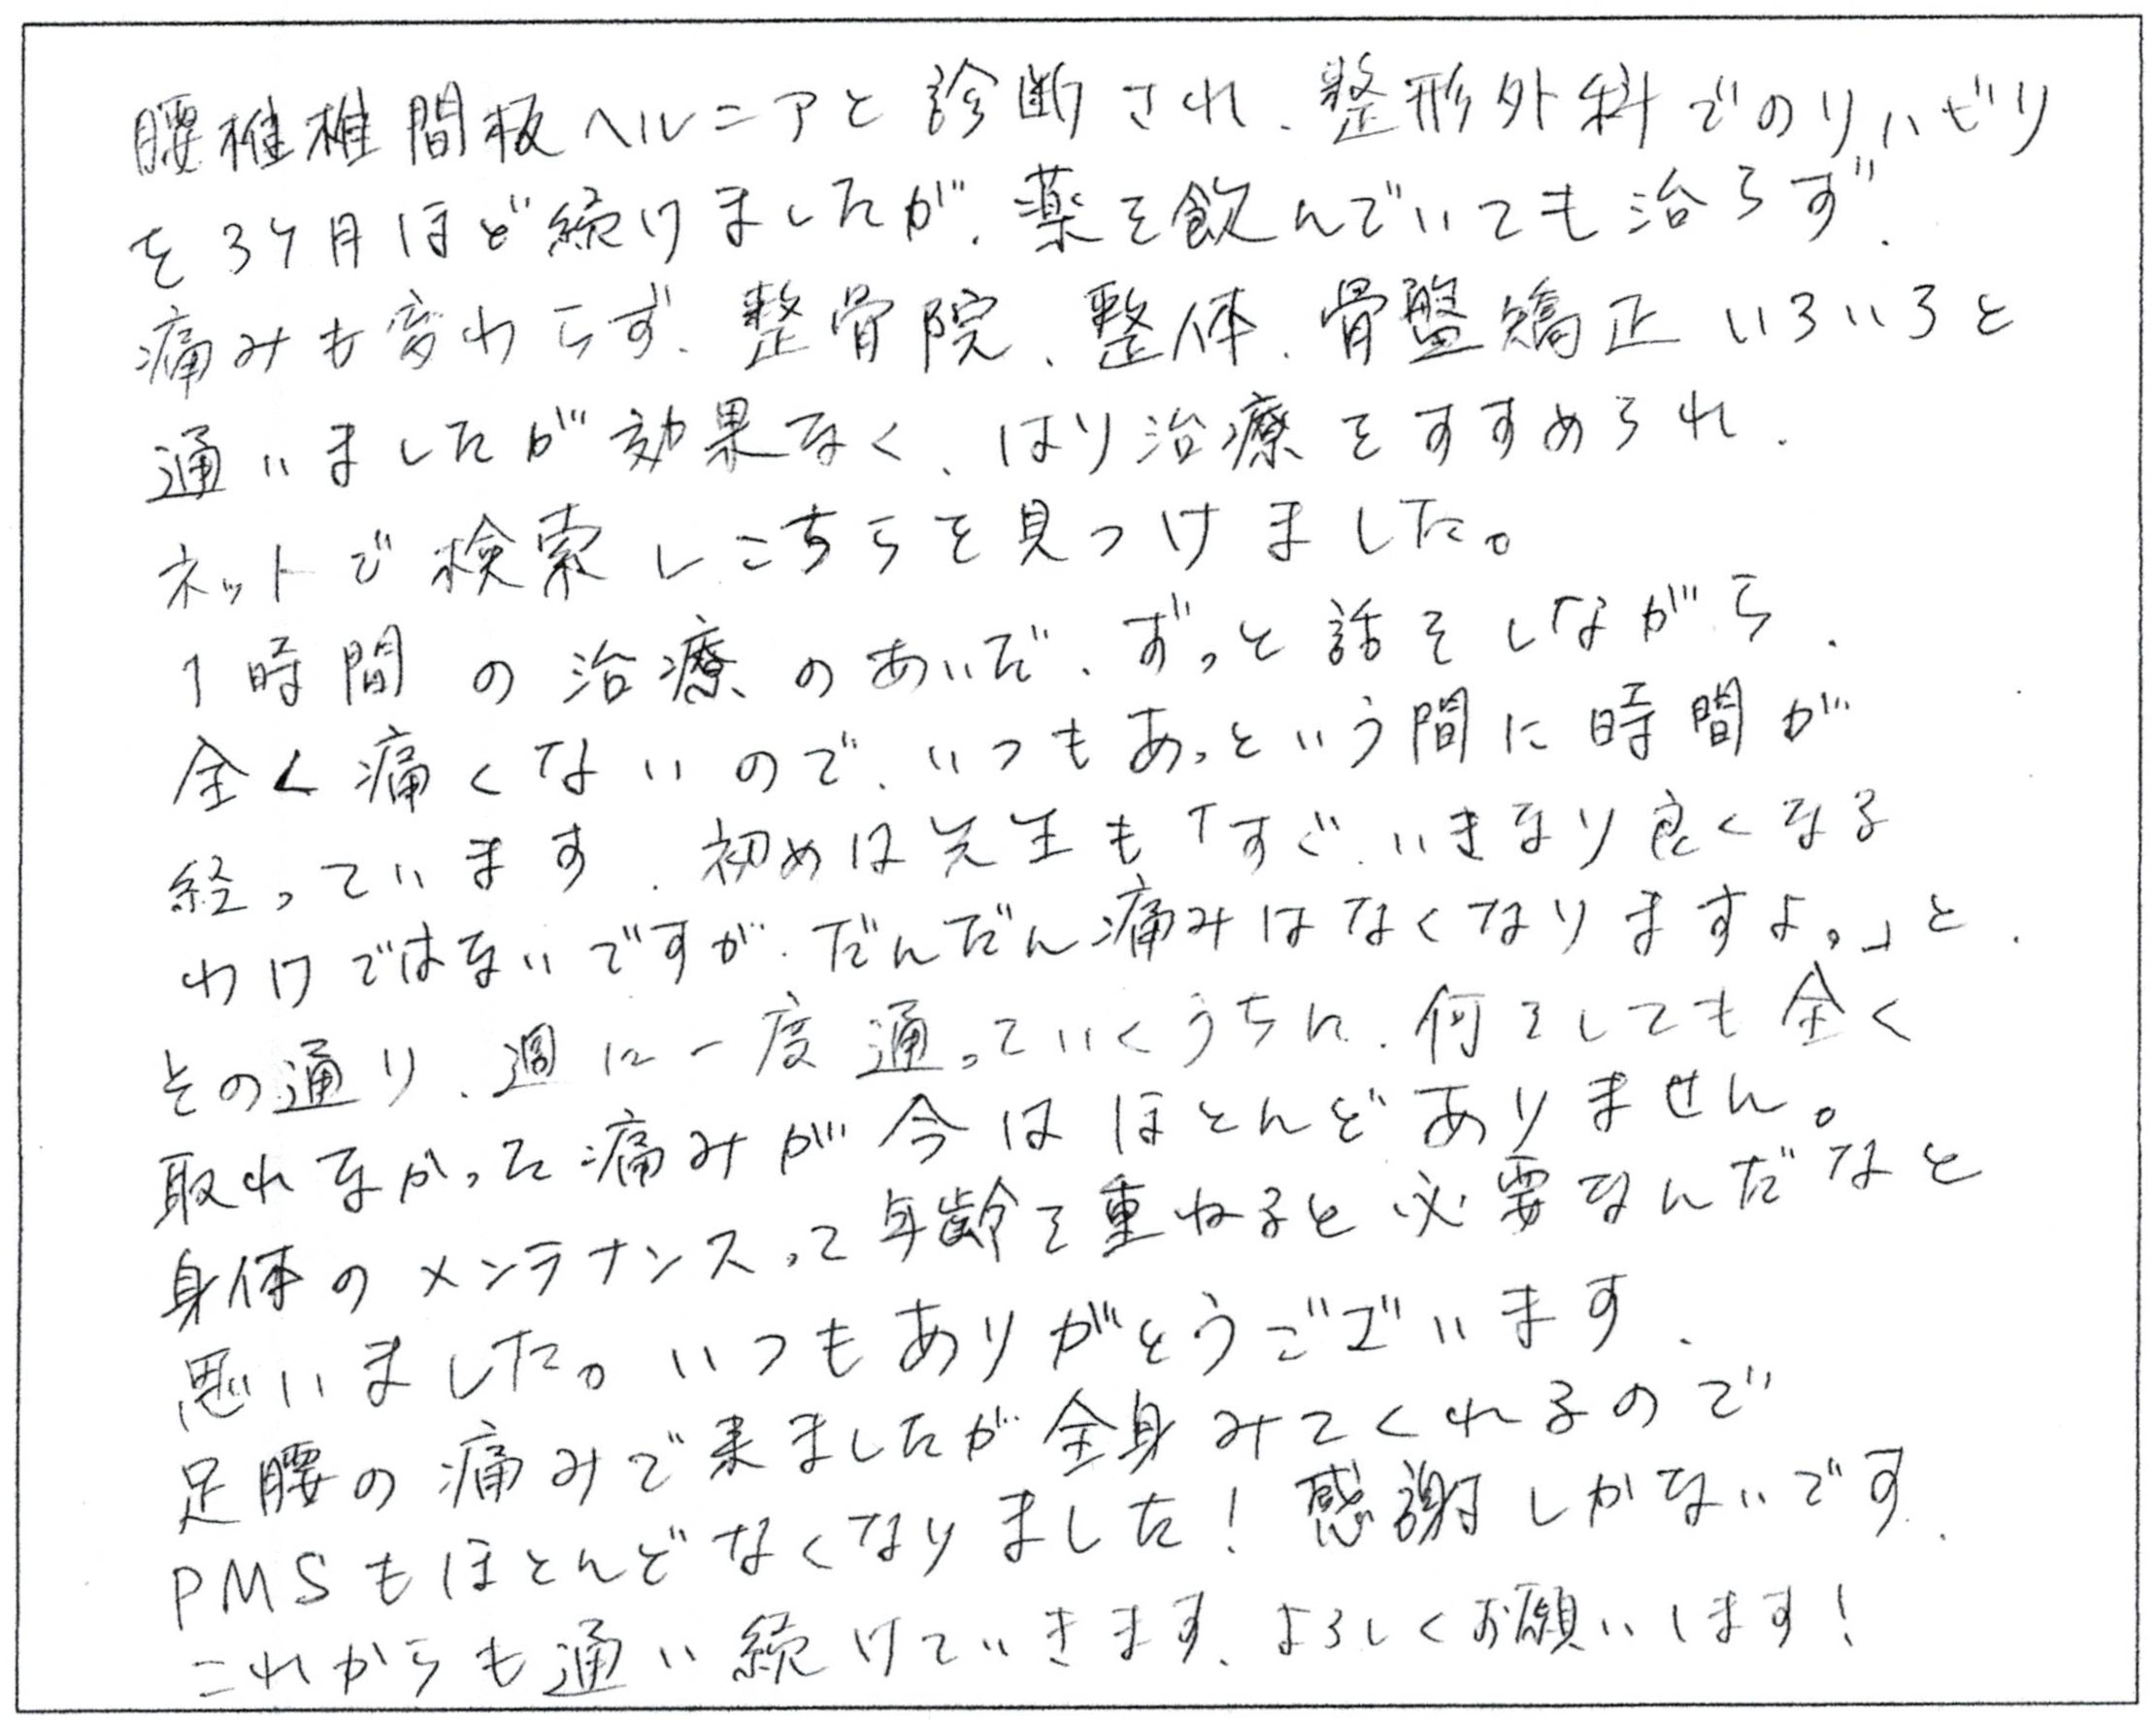 腰椎椎間板ヘルニアと診断され、整形外科でのリハビリ
を3ケ月ほど続けましたが、薬を飲んでいても治らず、
痛みも変わらず、整骨院、整体、骨盤矯正いろいろと
通いましたが効果なく、はり治療をすすめられ、
ネットで検索しこちらを見つけました。
1時間の治療のあいだ、ずっと話をしながら、
全く痛くないので、いつもあっという間に時間が
経っています。初めは先生も「すぐ、いきなり良くなる
わけではないですが、だんだん痛みはなくなりますよ。」と、
その通り、週に一度通っていくうちに、何をしても全く
取れなかった痛みが今はほとんどありません。
身体のメンテナンスって年齢を重ねると必要なんだなと
思いました。いつもありがとうございます、
足腰の痛みで来ましたが全身みてくれるので
PMSもほとんどなくなりました！感謝しかないです、
これからも通い続けていきます、よろしくお願いします！